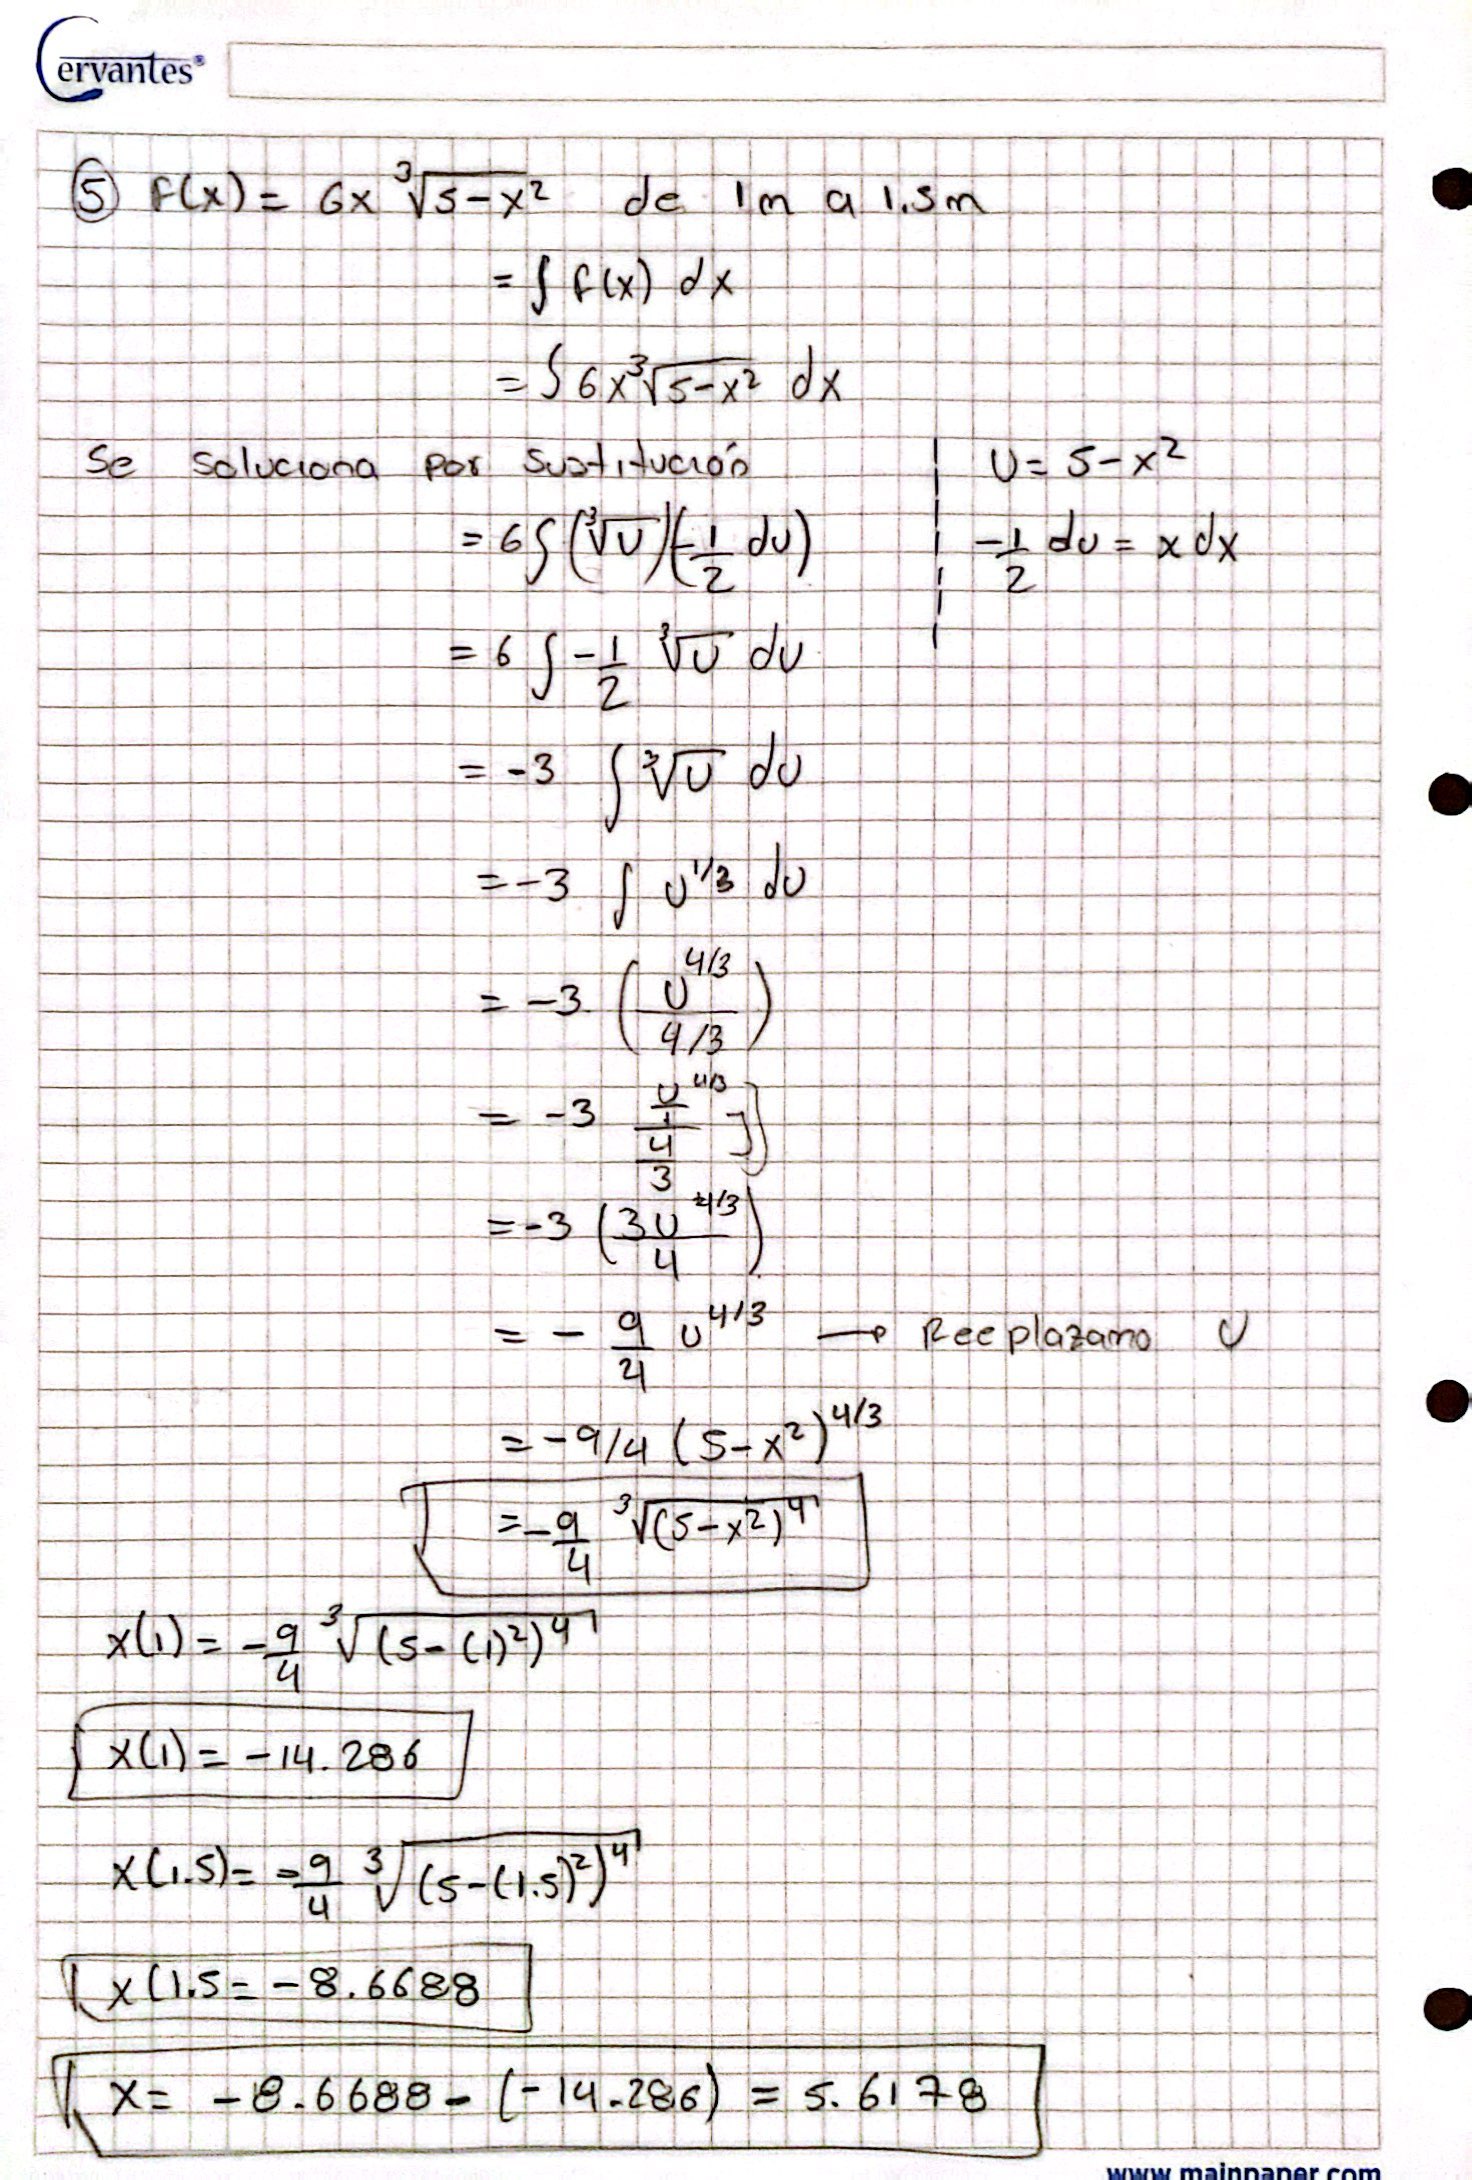 Cervantes®
⑤ f(x) = 6x ∛(5-x²) de 1m a 1.5m
= ∫ f(x) dx
= ∫ 6x ∛(5-x²) dx
Se soluciona por sustitución
U = 5-x²
= 6 ∫ (∛U)(-1/2 du)
-1/2 du = x dx
= 6 ∫ -1/2 ∛U du
= -3 ∫ ∛U du
= -3 ∫ U^1/3 du
= -3 (U^4/3 / 4/3)
= -3 U^4/3 / 1 / 4 / 3 ]
= -3 (3U^4/3 / 4)
= - 9/4 U^4/3 → Reeplazamo U
= -9/4 (5-x²)^4/3
= -9/4 ∛(5-x²)^4
x(1) = -9/4 ∛(5-(1)²)^4
x(1) = -14.286
x(1.5) = -9/4 ∛(5-(1.5)²)^4
x(1.5 = -8.6688
x = -8.6688 - (-14.286) = 5.6178
www.mainpaper.com